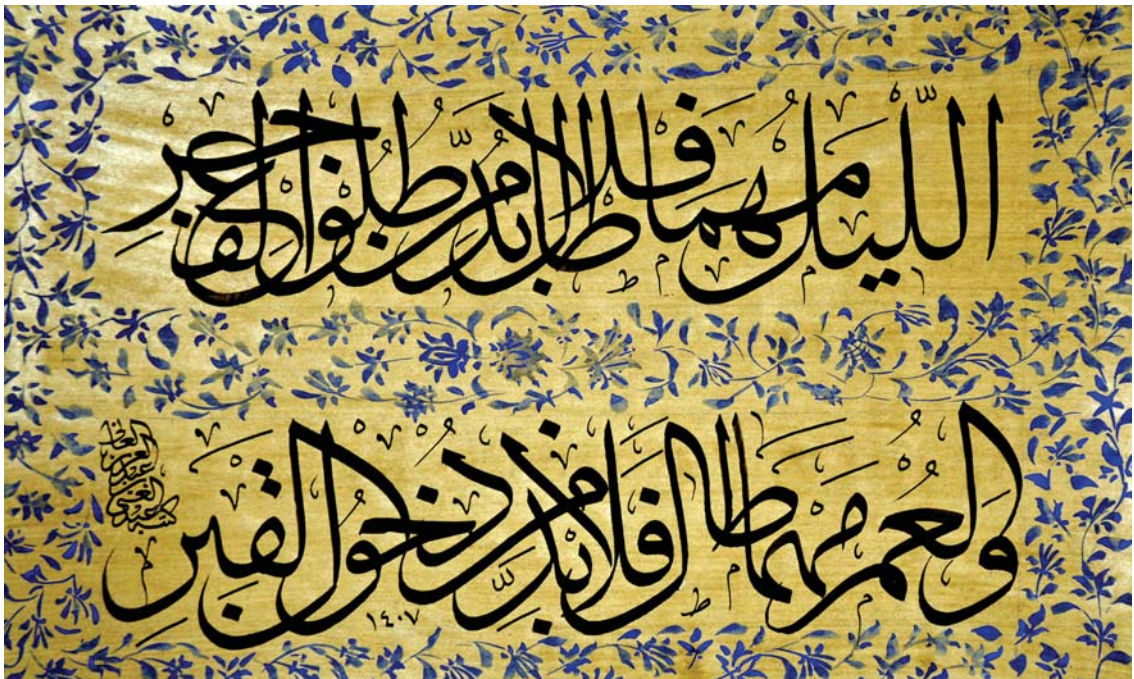 اللّيل مهما طال فلا بدّ من طلوع الفجرِ
وَالعُمر مَهما طال فَلا بدّ من دُخول القبرِ
١٤٠٧